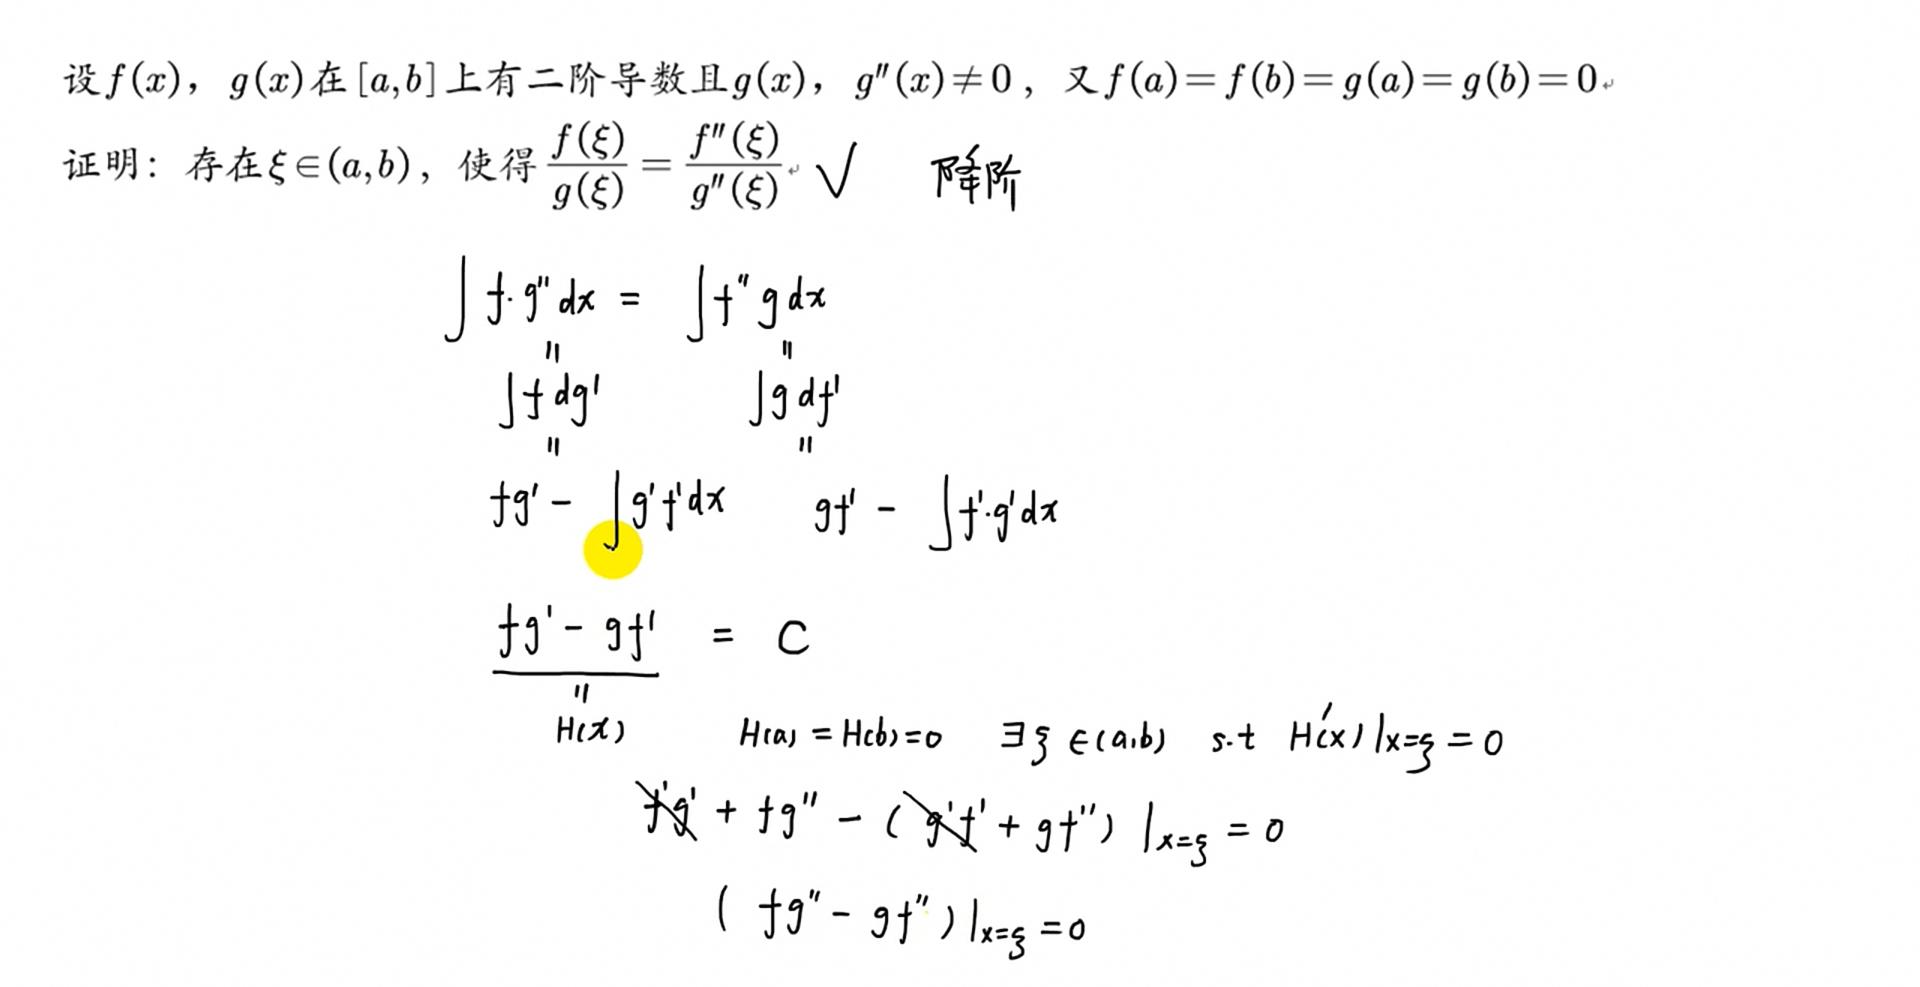 设f(x)，g(x)在[a,b]上有二阶导数且g(x)，g″(x)≠0，又f(a)=f(b)=g(a)=g(b)=0
证明：存在ξ∈(a,b)，使得f(ξ)/g(ξ)=f″(ξ)/g″(ξ) √ 降阶
∫f·g″dx = ∫f″gdx
" "
∫fdg′ ∫gdf′
" "
fg′ - ∫g′f′dx gf′ - ∫f′·g′dx
fg′ - gf′ = C
"
H(x) H(a) = H(b) = 0 ∃ξ∈(a,b) s.t H′(x)|x=ξ = 0
f′g′ + fg″ - (g′f′ + gf″)|x=ξ = 0
(fg″ - gf″)|x=ξ = 0